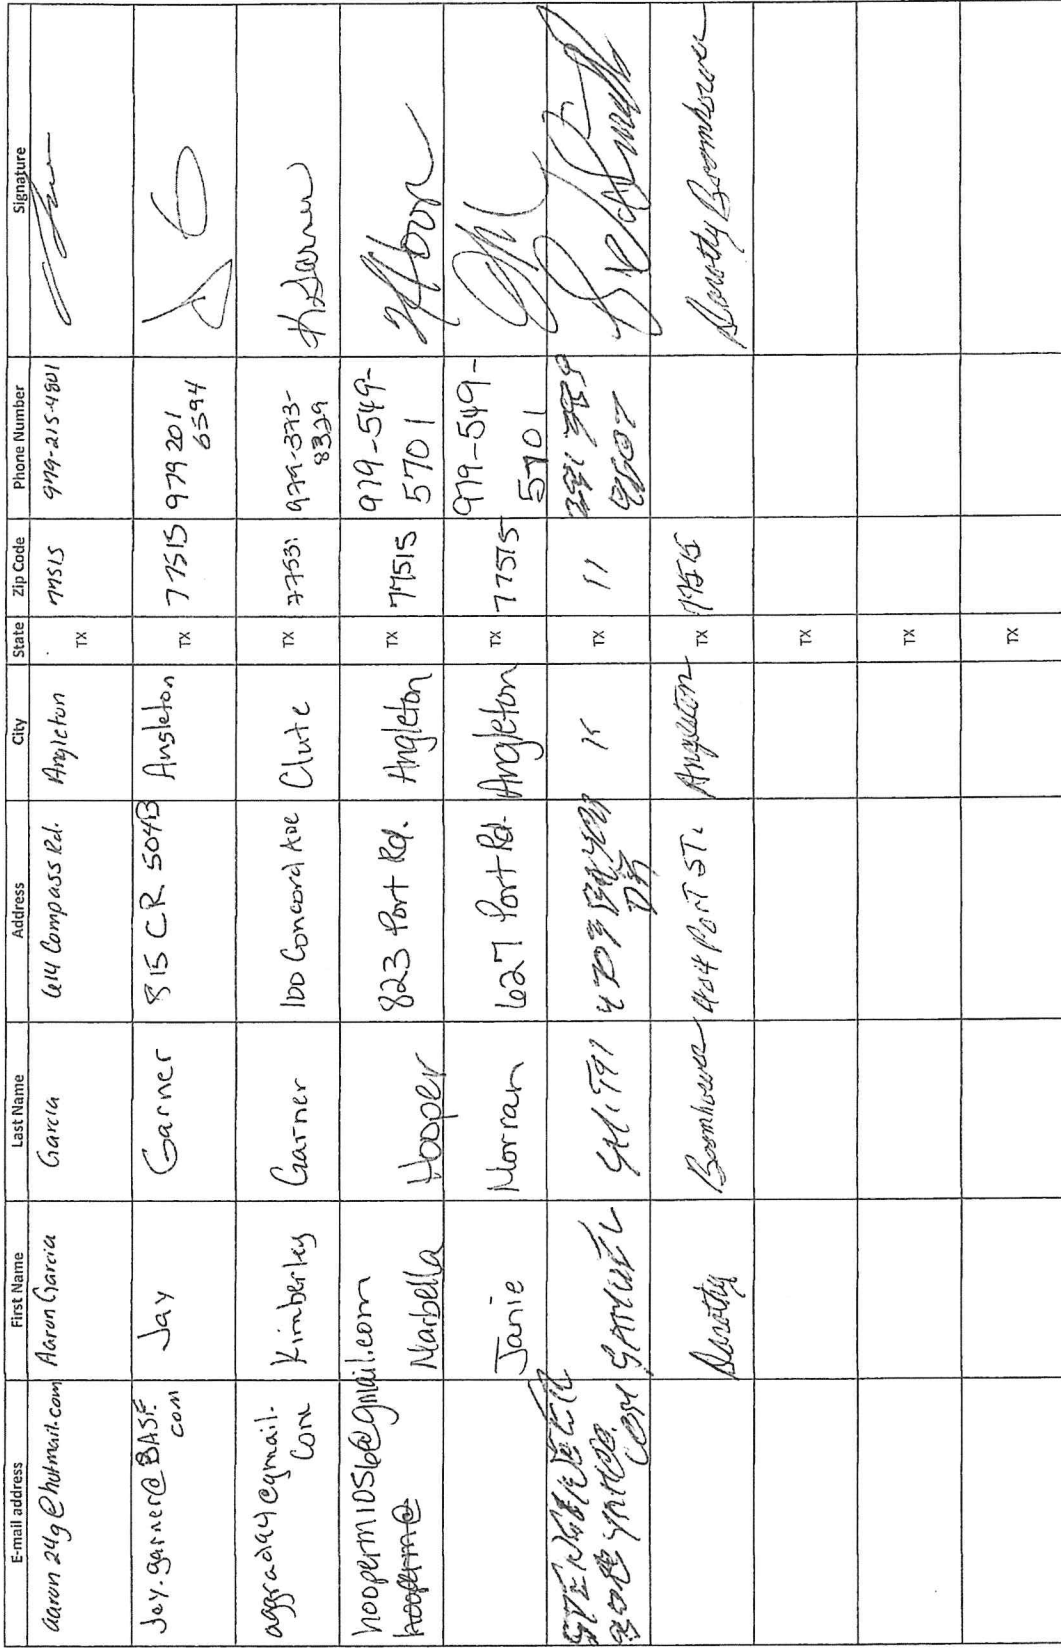 E-mail address First Name Last Name Address City State Zip Code Phone Number Signature
aaron24g@hotmail.com Aaron Garcia Garcia 614 Compass Rd. Angleton TX 77515 979-215-4801
Jay.garner@BASF. Jay Garner 815 CR 504B Angleton TX 77515 979 201
com 6594
@gmail. Kimberley Garner 100 Concord Ave Clute TX 77531 979-373-
com 8329 K Garner
hooperm1056@gmail.com
hooperm@ Marbella Hooper 823 Port Rd. Angleton TX 77515 979-549-
5701
Janie Morran 627 Port Rd. Angleton TX 77515 979-549-
5701
TX 11
Dorothy Boomhower 404 Port ST. Angleton TX Dorothy Boomhower
TX
TX
TX